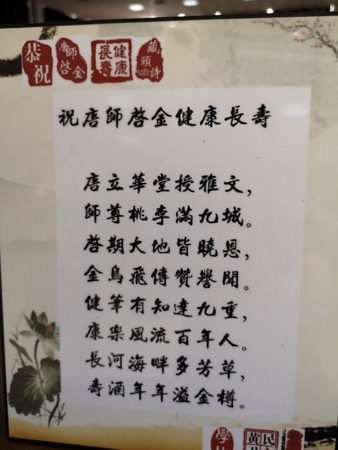 恭祝
唐師啓金
健康長壽
藏頭詩
祝唐師啓金健康長壽
唐立華堂授雅文，
師尊桃李滿九城。
啓期大地皆曉恩，
金烏飛傳贊譽聞。
健筆有知達九重，
康樂風流百年人。
長河海畔多芳草，
壽酒年年溢金樽。